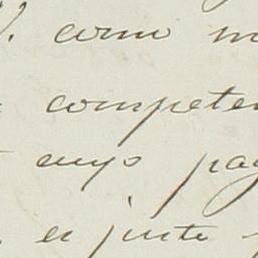 como
competen
cuyo pag
es justo